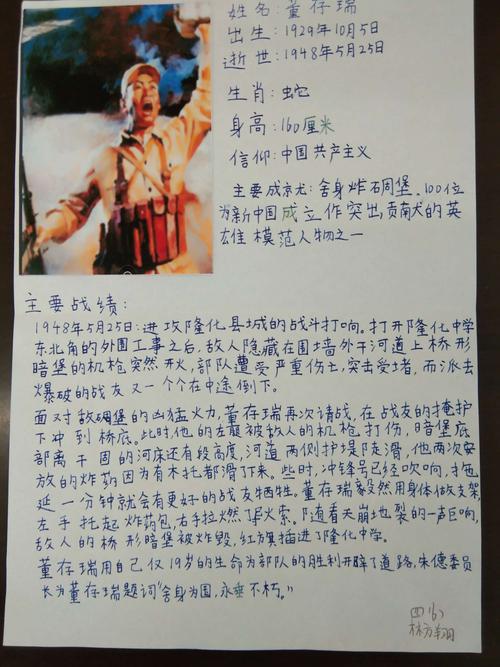 姓名:董存瑞
出生:1929年10月5日
逝世:1948年5月25日
生肖:蛇
身高:160厘米
信仰:中国共产主义
主要成京尤:舍身炸碉堡.100位
为新中国成立作突出贡献的英
雄模范人物之一
主要战绩:
1948年5月25日:进攻隆化县城的战斗打响。打开隆化中学
东北角的外围工事之后,敌人隐藏在围墙外干河道上桥形
暗堡的机枪突然开火,部队遭受严重伤亡,突击受堵,而派去
爆破的战友又一个个在中途倒下。
面对敌碉堡的凶猛火力,董存瑞再次请战,在战友的掩护
下冲到桥底。此时,他的左腿被敌人的机枪打伤,暗堡底
部离干固的河床还有段高度,河道两侧护堤陡滑,他两次安
放的炸药因为有木托都滑了下来。些时,冲锋号已经吹响,拖
延一分钟就会有更好的战友牺牲。董存瑞毅然用身体做支架,
左手托起炸药包,右手拉燃了导火索。随着天崩地裂的一声巨响,
敌人的桥形暗堡被炸毁,红旗插进了隆化中学。
董存瑞用自己仅19岁的生命为部队的胜利开辟了道路,朱德委员
长为董存瑞题词"舍身为国,永垂不朽。"
四(6)
林方翔